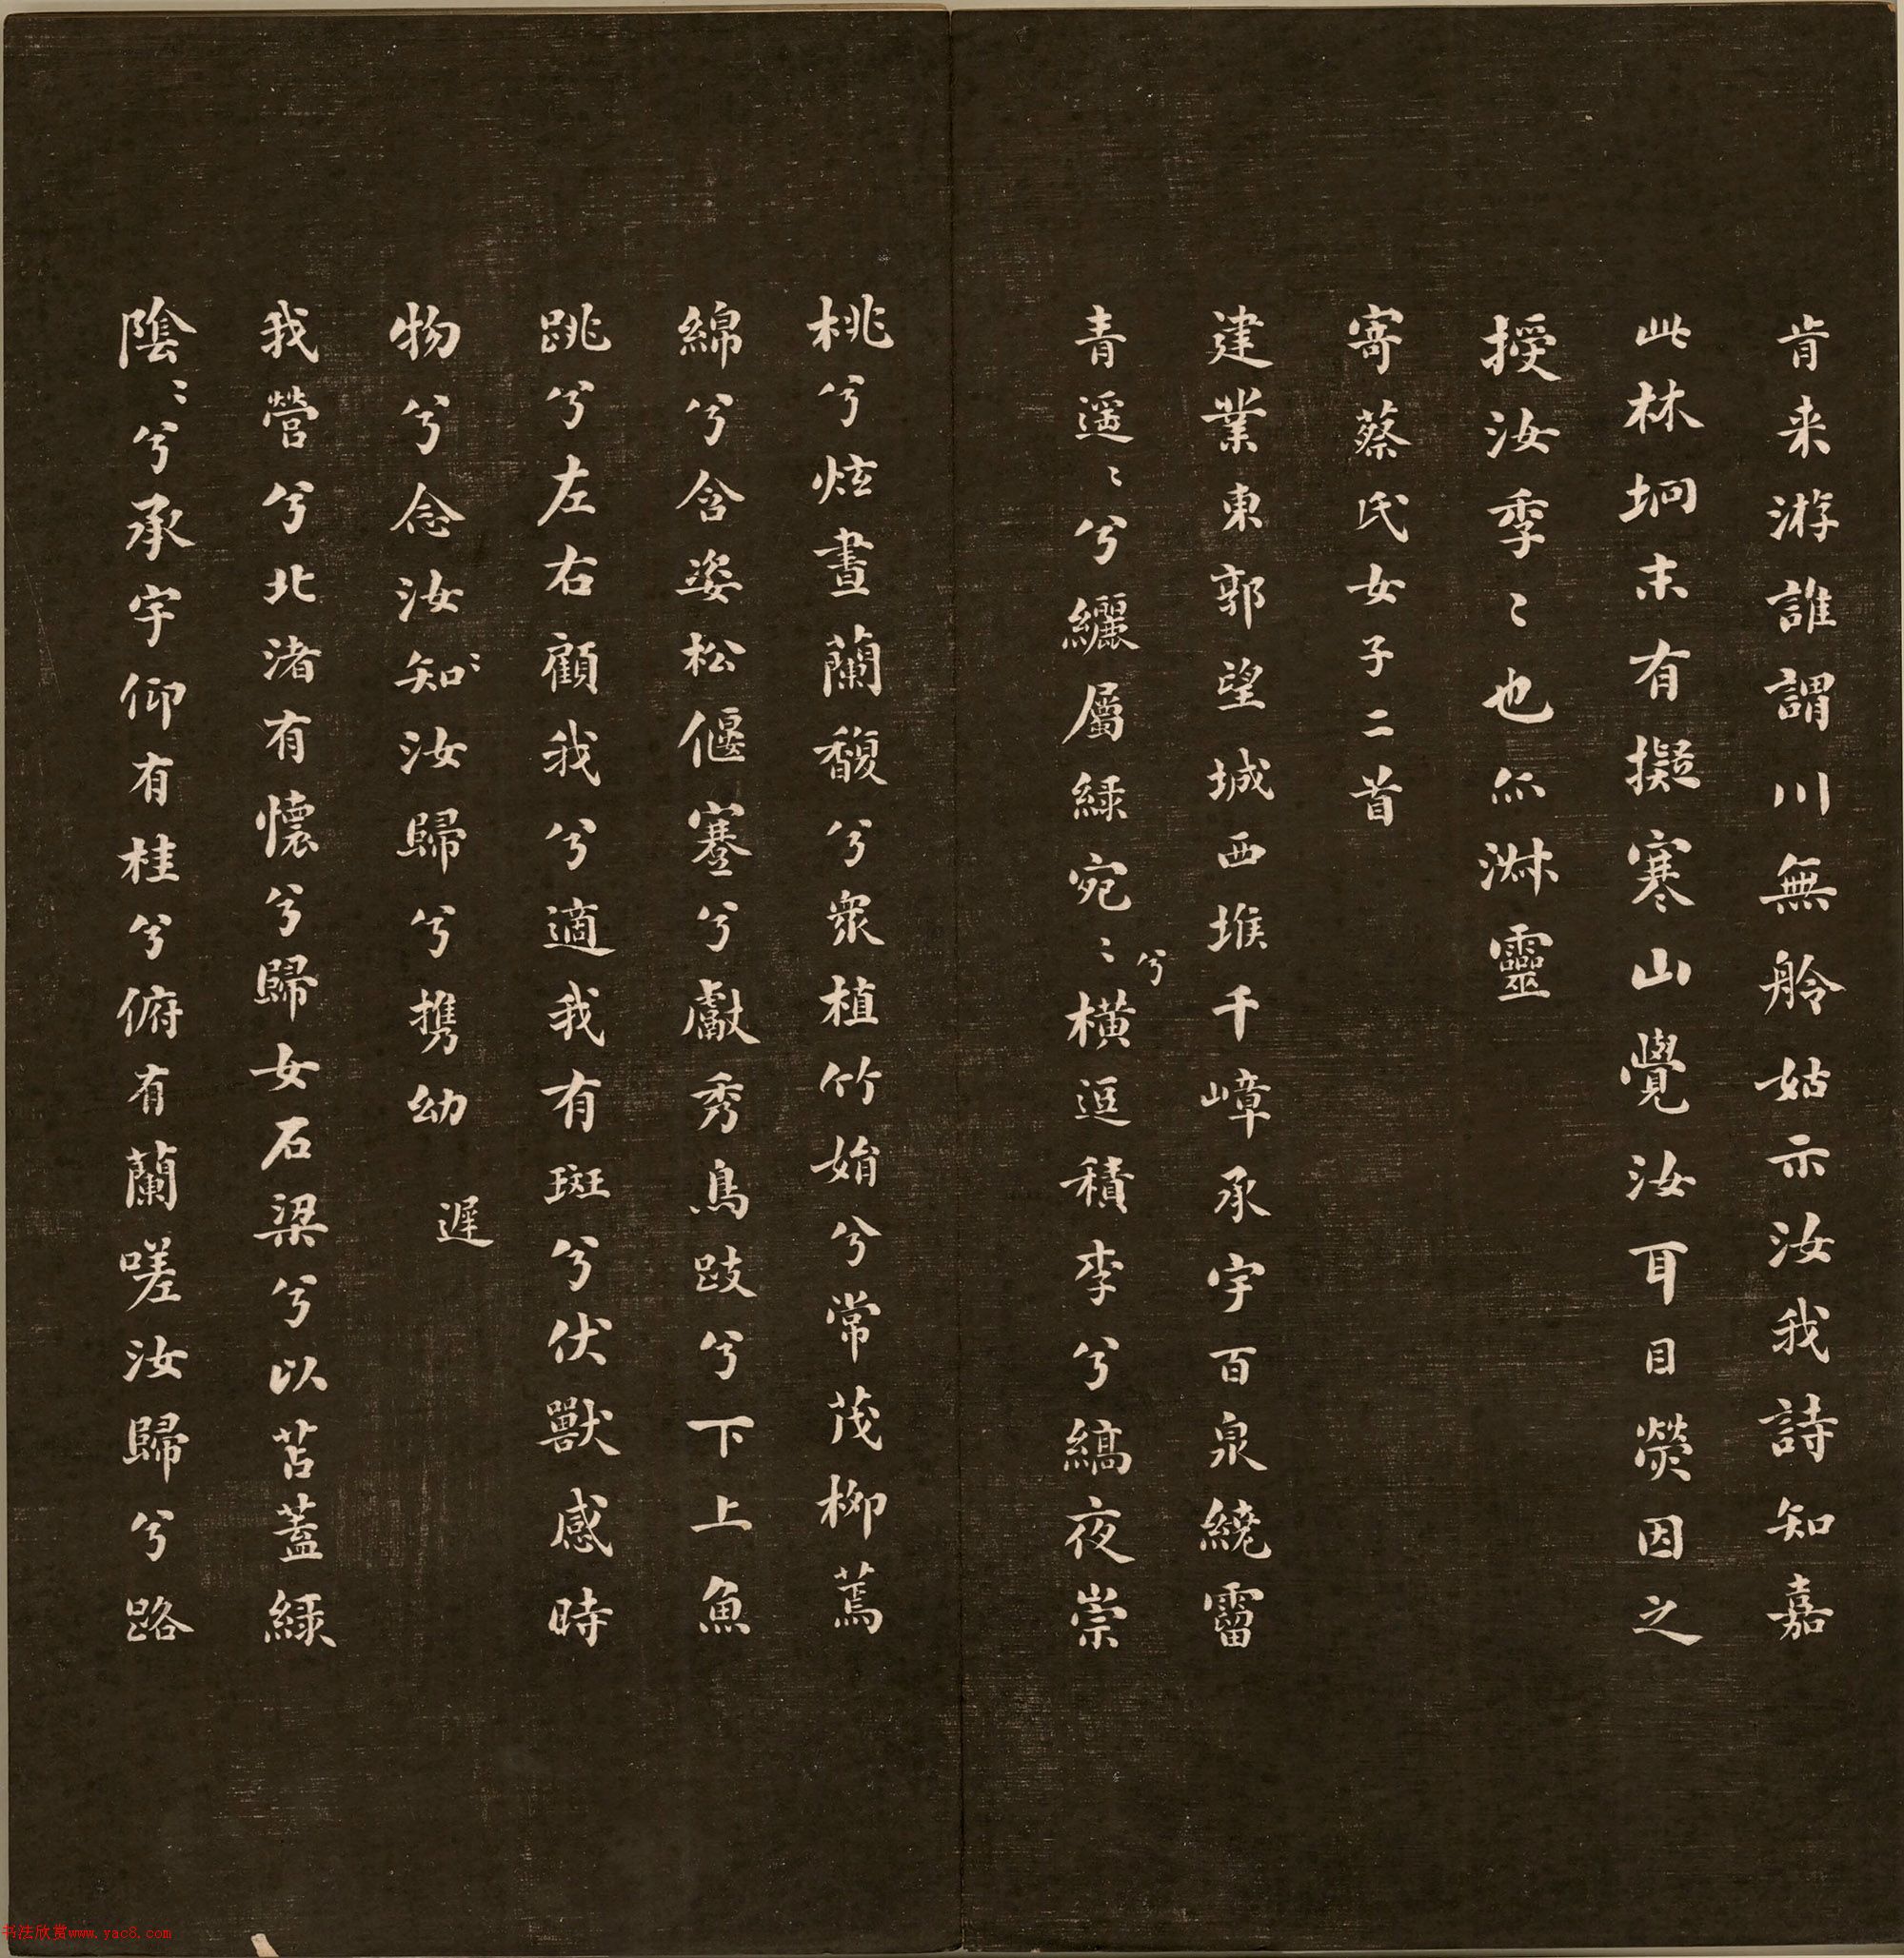 肯来游誰謂川無舲姑示汝我詩知嘉
此林坰末有擬寒山覺汝耳目熒因之
授汝季〻也亦淑靈
寄蔡氏女子二首
建業東郭望城西堠千嶂承宇百泉繞霤
青遥〻兮纚屬緑宛〻兮橫逗積李兮縞夜崇
桃兮炫晝蘭馥兮衆植竹娟兮常茂柳蔫
綿兮含姿松偃蹇兮獻秀鳥跂兮下上魚
跳兮左右顧我兮適我有斑兮伏獸感時
物兮念汝知〻汝歸兮携幼 遲
我營兮北渚有懷兮歸女石梁兮以苫蓋緑
陰〻兮承宇仰有桂兮俯有蘭嗟汝歸兮路
书法欣赏www.yac8.com